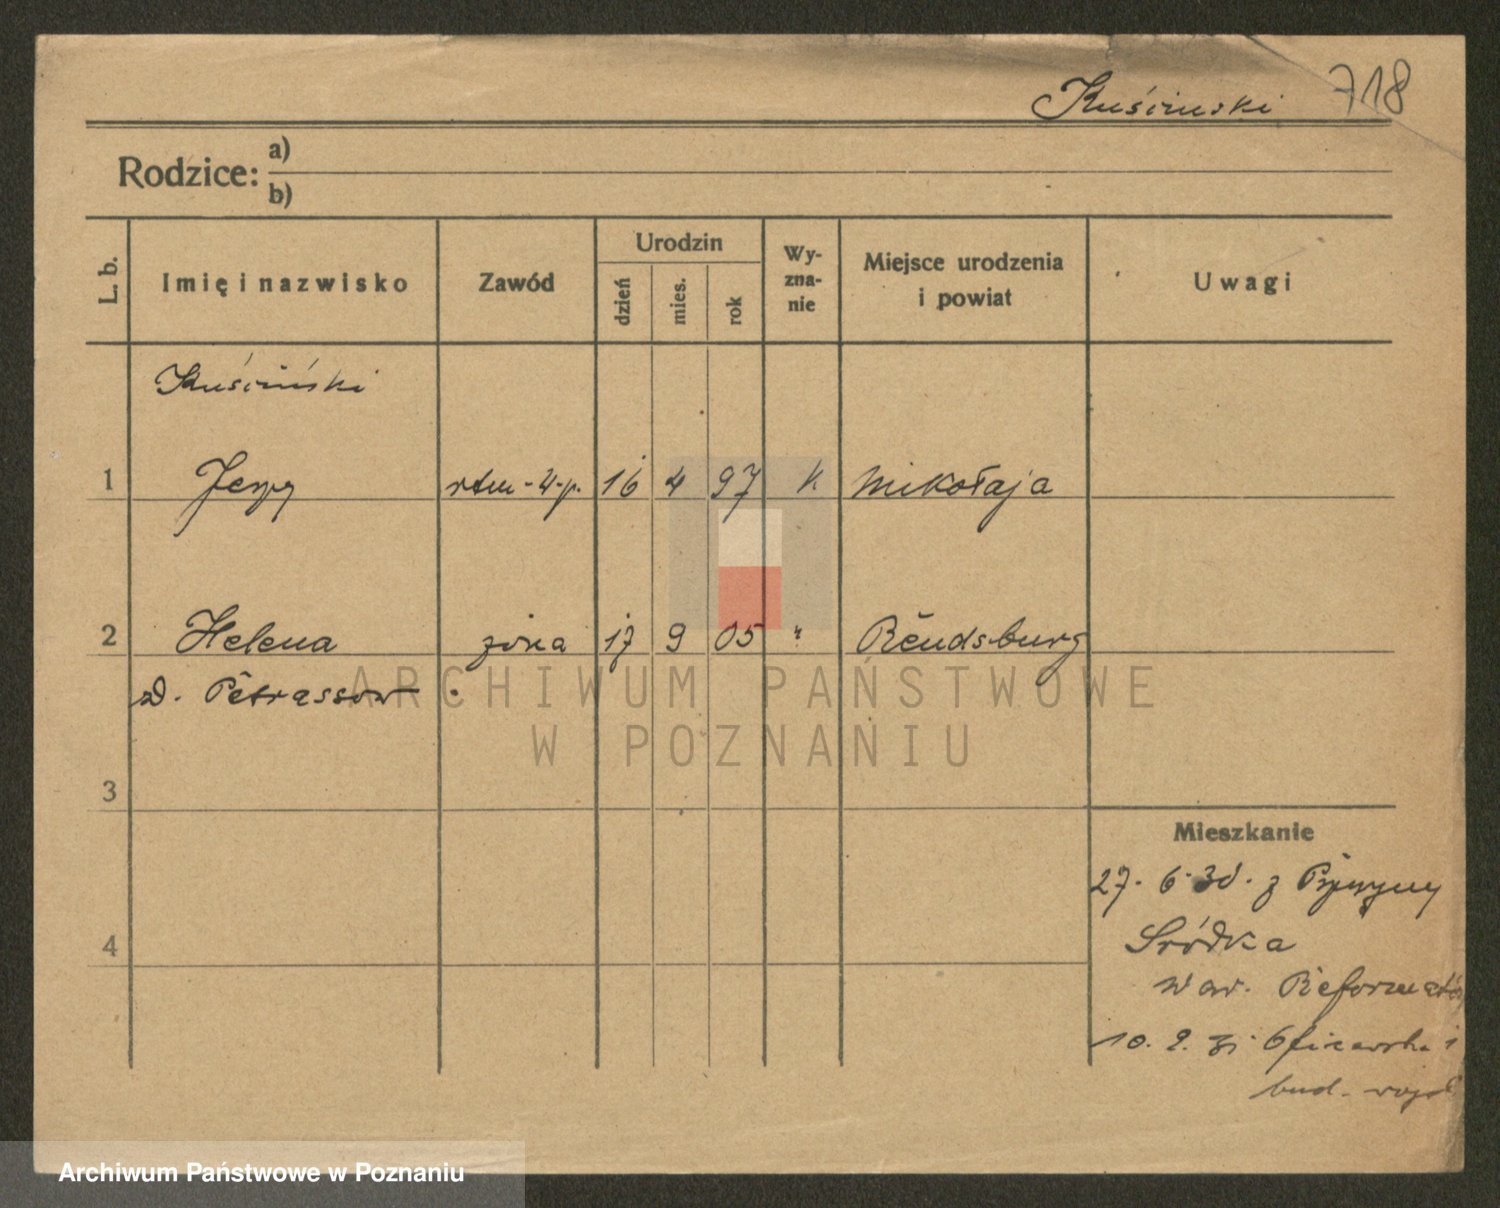 Kuściński 718
Rodzice: a)
b)
L. b. Imię i nazwisko Zawód Urodzin dzień mies. rok Wy-zna-nie Miejsce urodzenia i powiat Uwagi
Kuściński
1 Jerzy rtm. 16 4 97 k. Mikołaja
2 Helena żona 17 9 05 " Rendsburg
d. Petrassow
ARCHIWUM PAŃSTWOWE
W POZNANIU
3
Mieszkanie
27. 6. 30. z
4 Śródka
Reformató
10. 9. 31 Oficerska 1
bud.
Archiwum Państwowe w Poznaniu